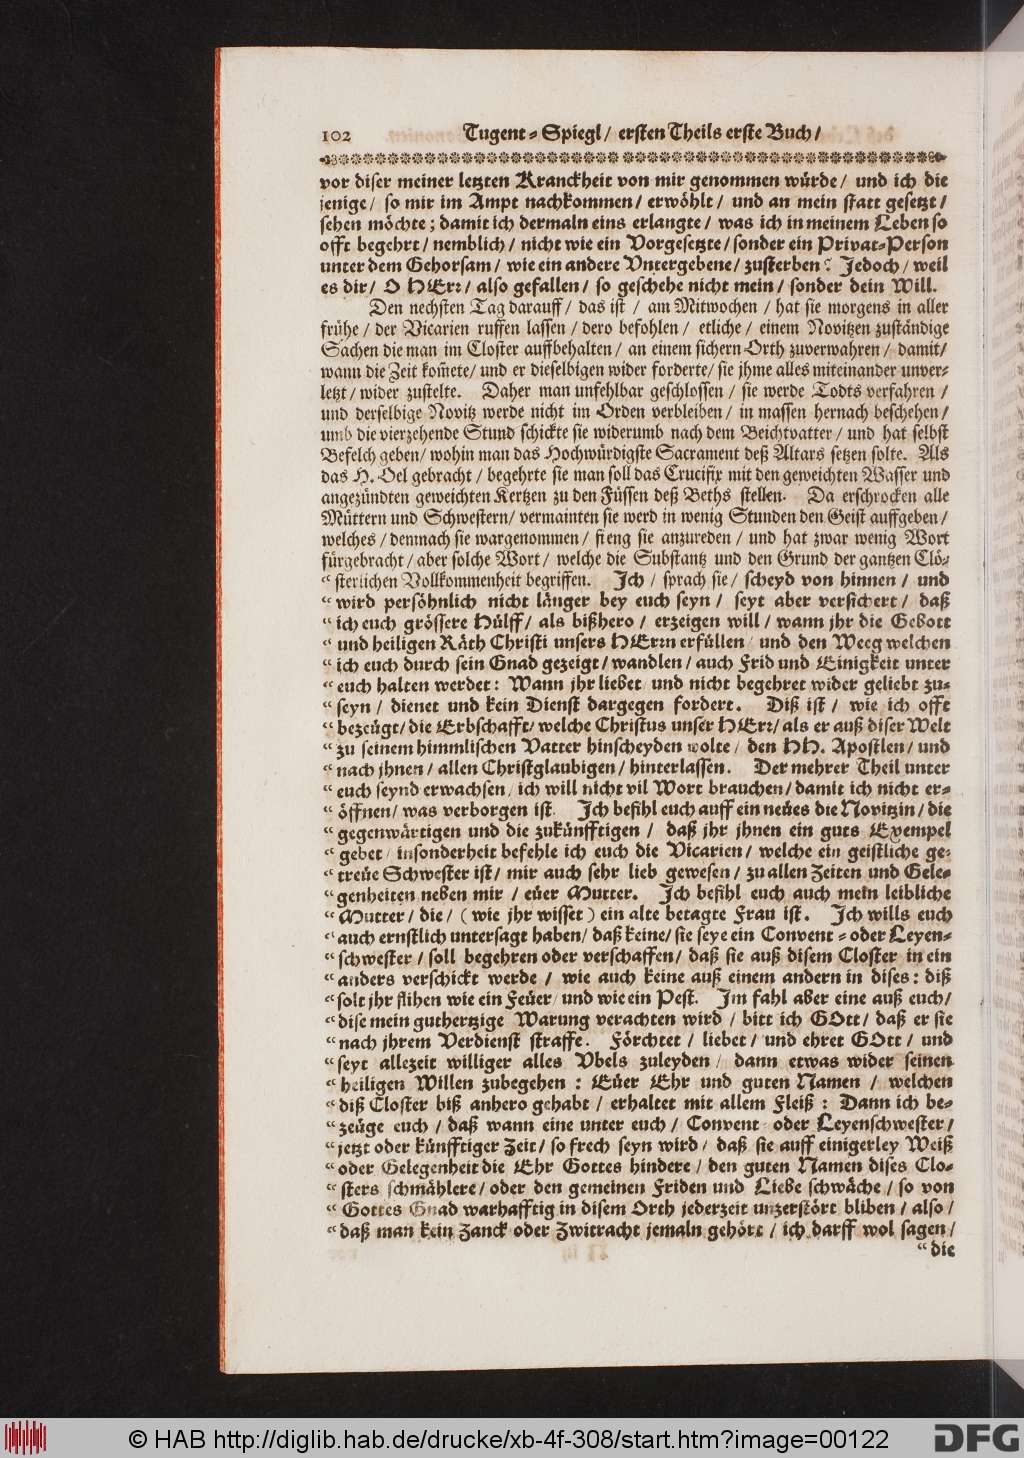 102 Tugent-Spiegl/ ersten Theils erste Buch/
vor diser meiner letzten Kranckheit von mir genommen würde/ und ich die
jenige/ so mir im Ampt nachkommen/ erwöhlt/ und an mein statt gesetzt/
sehen möchte; damit ich dermaln eins erlangte/ was ich in meinem Leben so
offt begehrt/ nemblich/ nicht wie ein Vorgesetzte/ sonder ein Privat-Person
unter dem Gehorsam/ wie ein andere Vntergebene/ zusterben? Jedoch/ weil
es dir/ O HErr/ also gefallen/ so geschehe nicht mein/ sonder dein Will.
Den nechsten Tag darauff/ das ist/ am Mitwochen/ hat sie morgens in aller
frühe/ der Vicarien ruffen lassen/ dero befohlen/ etliche/ einem Novitzen zuständige
Sachen die man im Closter auffbehalten/ an einem sichern Orth zuverwahren/ damit/
wann die Zeit kom̃ete/ und er dieselbigen wider forderte/ sie jhme alles miteinander unver-
letzt/ wider zustelte. Daher man unfehlbar geschlossen/ sie werde Todts verfahren/
und derselbige Novitz werde nicht im Orden verbleiben/ in massen hernach beschehen/
umb die vierzehende Stund schickte sie widerumb nach dem Beichtvatter/ und hat selbst
Befelch geben/ wohin man das Hochwürdigste Sacrament deß Altars setzen solte. Als
das H. Oel gebracht/ begehrte sie man soll das Crucifix mit den geweichten Wasser und
angezündten geweichten Kertzen zu den Füssen deß Beths stellen. Da erschrocken alle
Müttern und Schwestern/ vermainten sie werd in wenig Stunden den Geist auffgeben/
welches/ demnach sie wargenommen/ fieng sie anzureden/ und hat zwar wenig Wort
fürgebracht/ aber solche Wort/ welche die Substantz und den Grund der gantzen Clö-
“ sterlichen Vollkommenheit begriffen. Ich/ sprach sie/ scheyd von hinnen/ und
“ wird persöhnlich nicht länger bey euch seyn/ seyt aber versichert/ daß
“ ich euch grössere Hülff/ als bißhero/ erzeigen will/ wann jhr die Gebott
“ und heiligen Räth Christi unsers HErrn erfüllen/ und den Weeg welchen
“ ich euch durch sein Gnad gezeigt/ wandlen/ auch Frid und Einigkeit unter
“ euch halten werdet: Wann jhr liebet/ und nicht begehret wider geliebt zu-
“ seyn/ dienet und kein Dienst dargegen fordert. Diß ist/ wie ich offt
“ bezeügt/ die Erbschafft/ welche Christus unser HErr/ als er auß diser Welt
“ zu seinem himmlischen Vatter hinscheyden wolte/ den HH. Apostlen/ und
“ nach jhnen/ allen Christglaubigen/ hinterlassen. Der mehrer Theil unter
“ euch seynd erwachsen/ ich will nicht vil Wort brauchen/ damit ich nicht er-
“ öffnen/ was verborgen ist. Ich befihl euch auff ein neües die Novitzin/ die
“ gegenwärtigen und die zukünfftigen/ daß jhr jhnen ein guts Exempel
“ gebet/ insonderheit befehle ich euch die Vicarien/ welche ein geistliche ge-
“ treüe Schwester ist/ mir auch sehr lieb gewesen/ zu allen Zeiten und Gele-
“ genheiten neben mir/ eüer Mutter. Ich befihl euch auch mein leibliche
“ Mutter/ die/ (wie jhr wisset) ein alte betagte Frau ist. Ich wills euch
“ auch ernstlich untersagt haben/ daß keine/ sie seye ein Convent- oder Leyen-
“ schwester/ soll begehren oder verschaffen/ daß sie auß disem Closter in ein
“ anders verschickt werde/ wie auch keine auß einem andern in dises: diß
“ solt jhr flihen wie ein Feüer/ und wie ein Pest. Im fahl aber eine auß euch/
“ dise mein guthertzige Warung verachten wird/ bitt ich GOtt/ daß er sie
“ nach jhrem Verdienst straffe. Förchtet/ liebet/ und ehret GOtt/ und
“ seyt allezeit williger alles Vbels zuleyden/ dann etwas wider seinen
“ heiligen Willen zubegehen: Eüer Ehr und guten Namen/ welchen
“ diß Closter biß anhero gehabt/ erhaltet mit allem Fleiß: Dann ich be-
“ zeüge euch/ daß wann eine unter euch/ Convent- oder Leyenschwester/
“ jetzt oder künfftiger Zeit/ so frech seyn wird/ daß sie auff einigerley Weiß
“ oder Gelegenheit die Ehr Gottes hindere/ den guten Namen dises Clo-
“ sters schmählere/ oder den gemeinen Friden und Liebe schwäche/ so von
“ Gottes Gnad warhafftig in disem Orth jederzeit unzerstört bliben/ also/
“ daß man kein Zanck oder Zwitracht jemaln gehört/ ich darff wol sagen/
“ die
© HAB http://diglib.hab.de/drucke/xb-4f-308/start.htm?image=00122
DFG